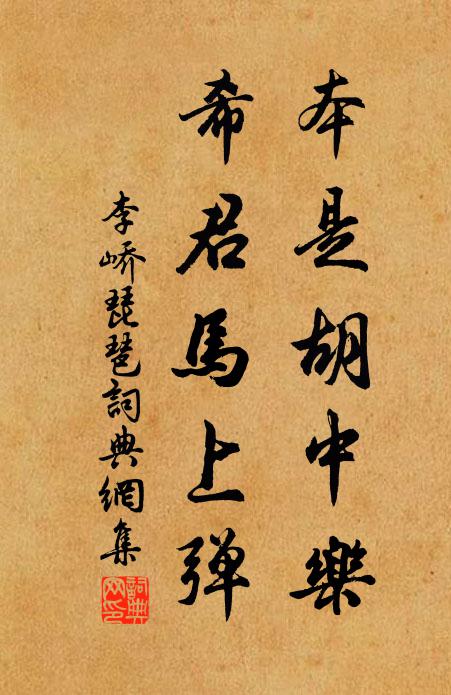 本是胡中樂
希君馬上彈
李嶠琵琶詞典網集
詞典网印